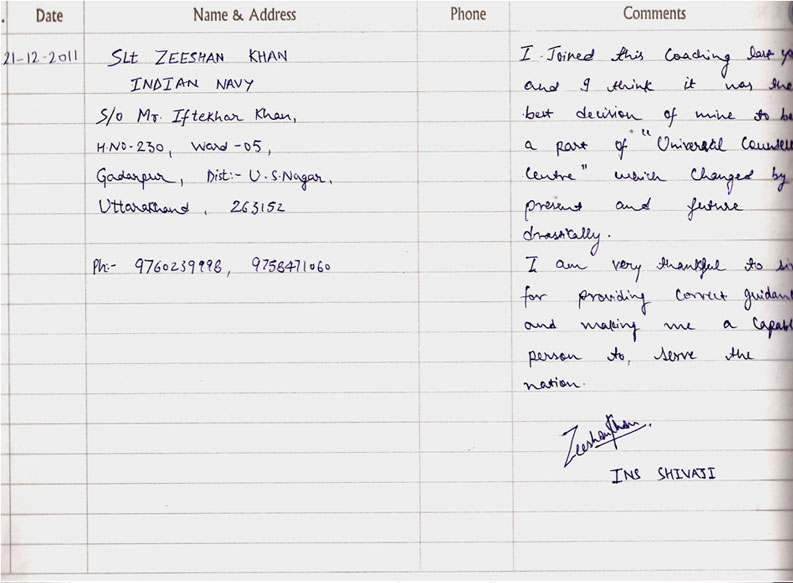 . Date Name & Address Phone Comments
21-12-2011
SLt ZEESHAN KHAN
INDIAN NAVY
S/o Mr. Iftekhar Khan,
H.NO-230, Ward -05,
Gadarpur, Dist:- U.S.Nagar,
Uttarakhand, 263152
Ph:- 9760239998, 9758471060
I Joined this Coaching last
and I think it was the
best decision of mine to be
a part of "Universal
Centre" which changed by
present and future
drastically.
I am very thankful to
for providing correct
and making me a
person to, serve the
nation.
Zeeshan Khan.
INS SHIVAJI